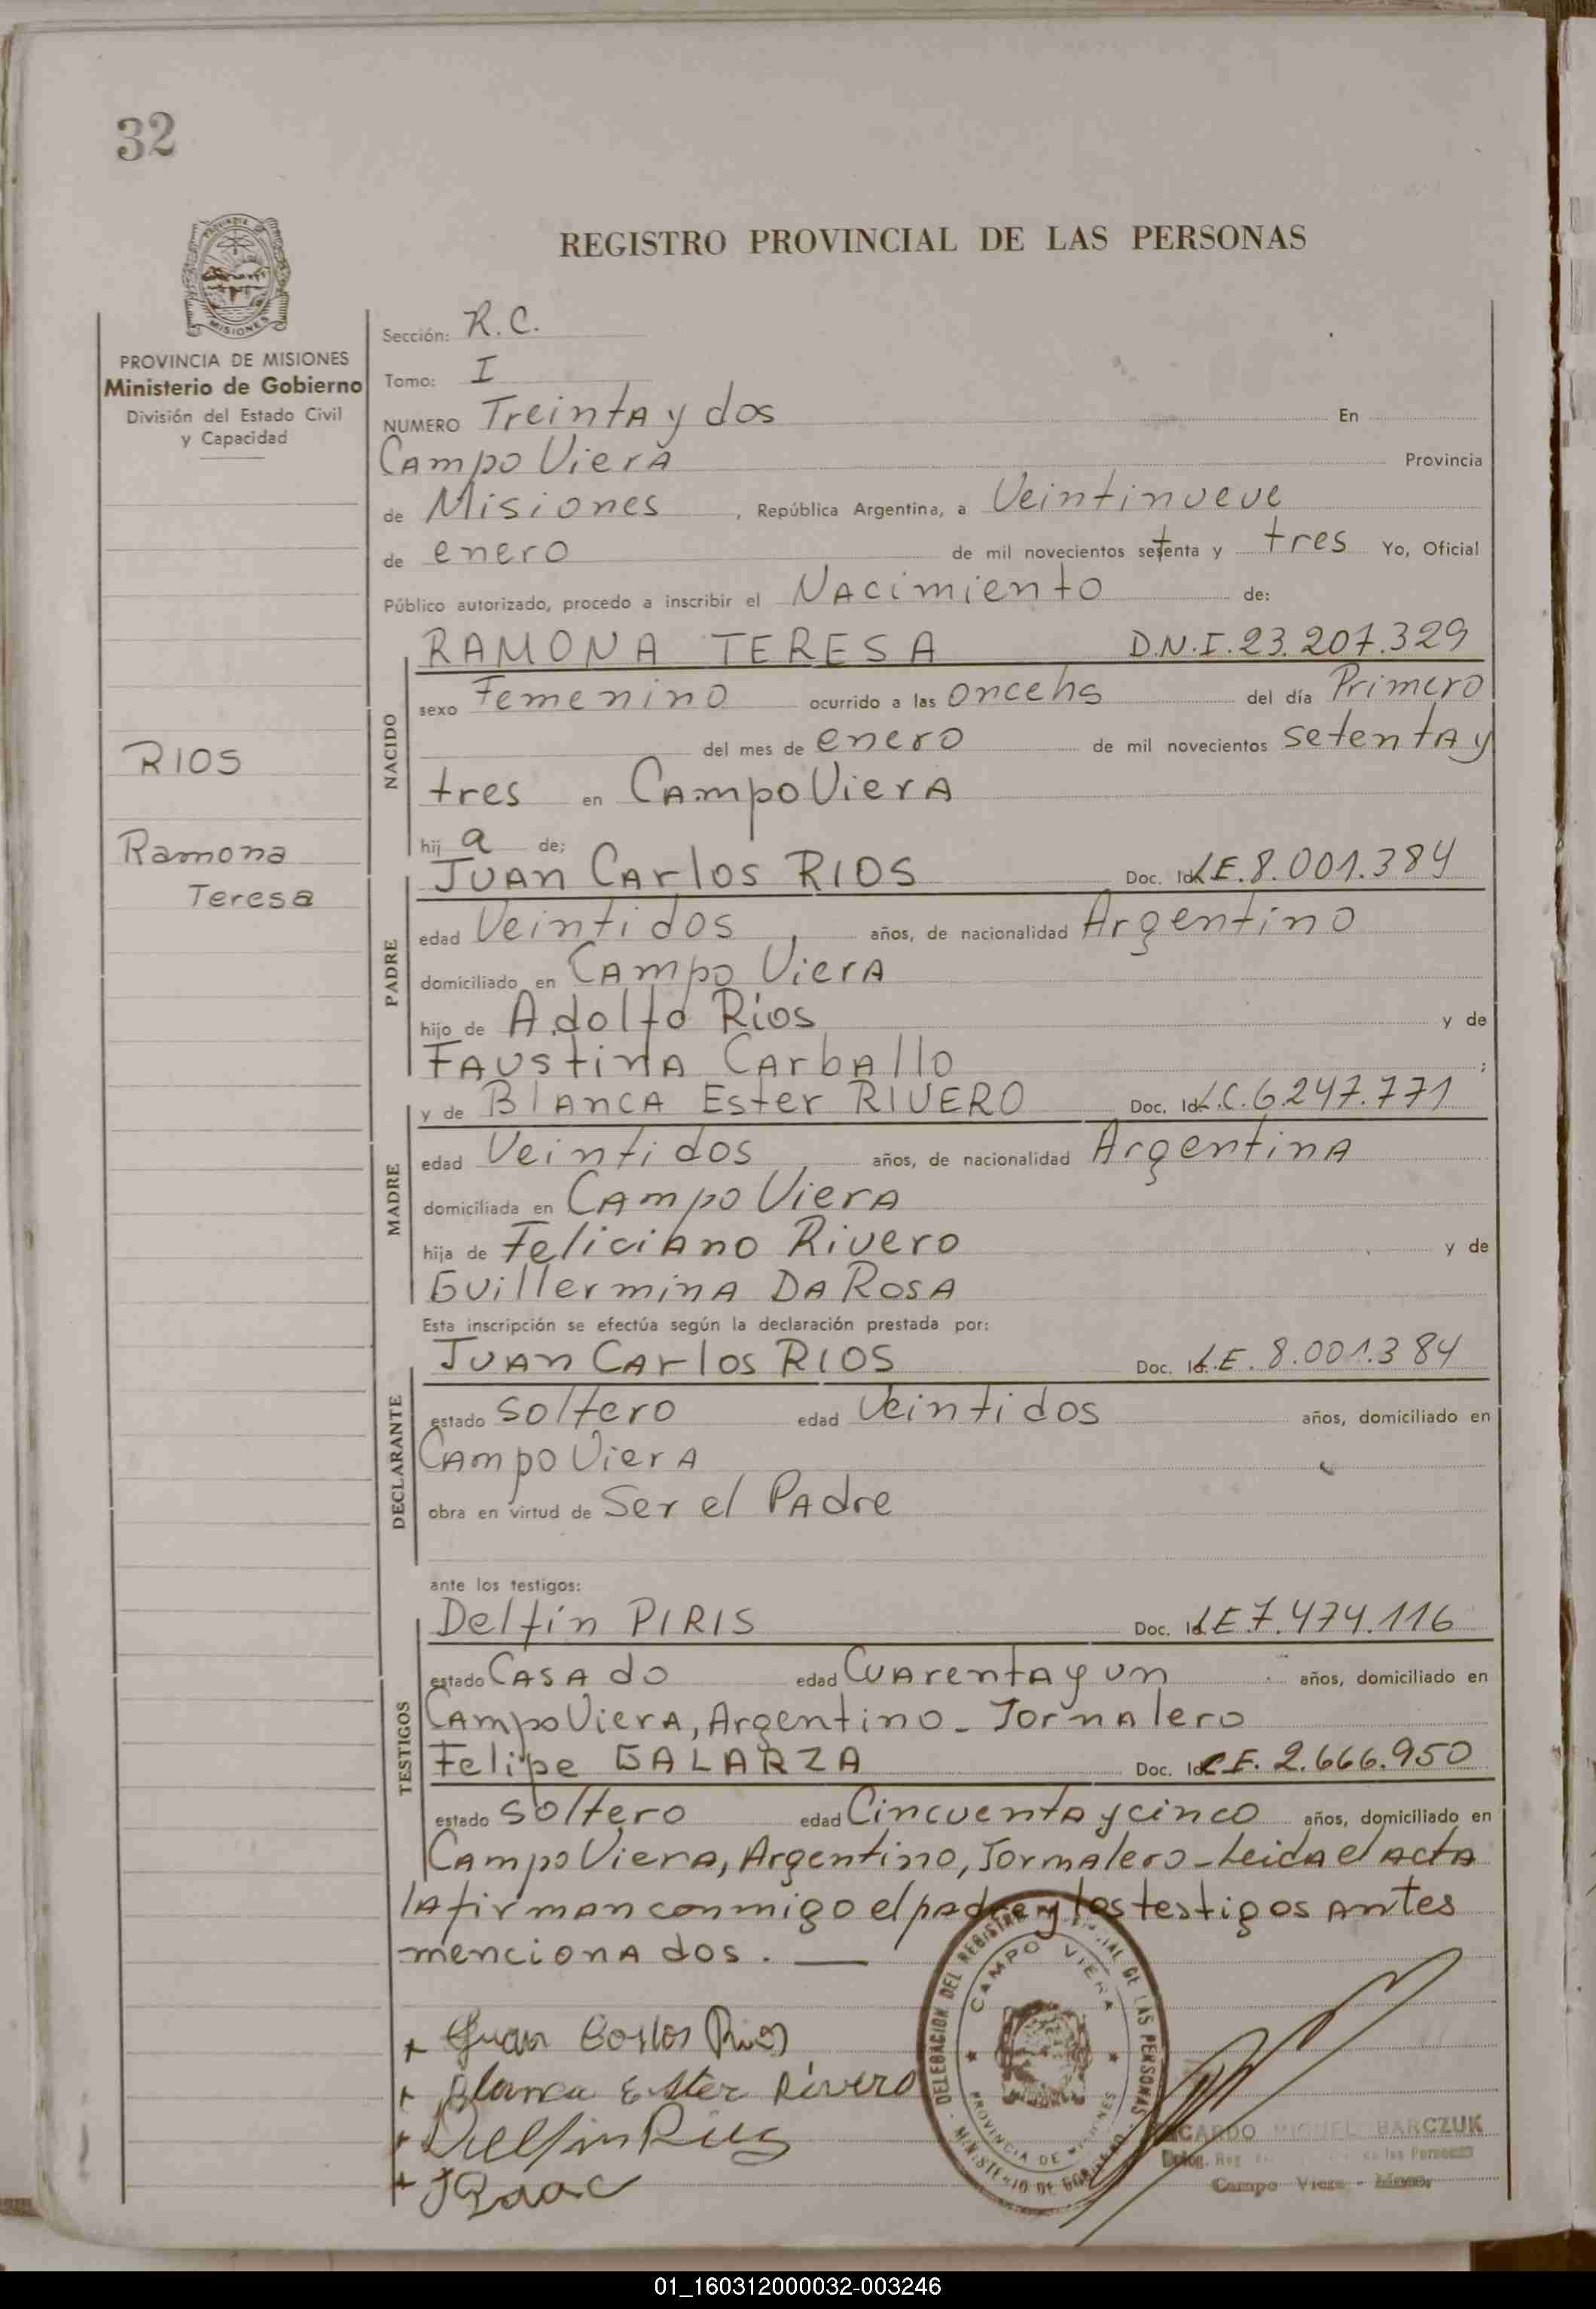 32
REGISTRO PROVINCIAL DE LAS PERSONAS
PROVINCIA
MISIONES
PROVINCIA DE MISIONES
Ministerio de Gobierno
División del Estado Civil
y Capacidad
RIOS
Ramona
Teresa
Sección: R.C.
Tomo: I
NUMERO Treinta y dos En
Campo Viera Provincia
de Misiones, República Argentina, a Veintinueve
de enero de mil novecientos setenta y tres Yo, Oficial
Público autorizado, procedo a inscribir el Nacimiento de:
NACIDO
RAMONA TERESA D.N.I. 23.207.329
sexo Femenino ocurrido a las once hs del día Primero
del mes de enero de mil novecientos setenta y
tres en Campo Viera
hij a de;
PADRE
Juan Carlos RIOS Doc. Id. L.E. 8.001.384
edad Veintidos años, de nacionalidad Argentino
domiciliado en Campo Viera
hijo de Adolfo Ríos y de
Faustina Carballo ;
MADRE
y de Blanca Ester RIVERO Doc. Id. L.C. 6.247.771
edad Veintidos años, de nacionalidad Argentina
domiciliada en Campo Viera
hija de Feliciano Rivero y de
Guillermina Da Rosa
Esta inscripción se efectúa según la declaración prestada por:
DECLARANTE
Juan Carlos RIOS Doc. Id. L.E. 8.001.384
estado soltero edad Veintidos años, domiciliado en
Campo Viera
obra en virtud de Ser el Padre
ante los testigos:
TESTIGOS
Delfín PIRIS Doc. Id. L.E. 7.474.116
estado Casado edad Cuarenta y un años, domiciliado en
Campo Viera, Argentino - Jornalero
Felipe GALARZA Doc. Id. L.E. 2.666.950
estado soltero edad Cincuenta y cinco años, domiciliado en
Campo Viera, Argentino, Jornalero - Leida el acta
la firman conmigo el padre y los testigos antes
mencionados.
Juan Carlos Rios
Blanca Ester Rivero
DELEGACION DEL REGISTRO PROVINCIAL DE LAS PERSONAS
CAMPO VIERA
PROVINCIA DE MISIONES
MINISTERIO DE GOBIERNO
RICARDO MIGUEL BARCZUK
Deleg. Reg. de las Personas
Campo Viera - Mnes.
01_160312000032-003246